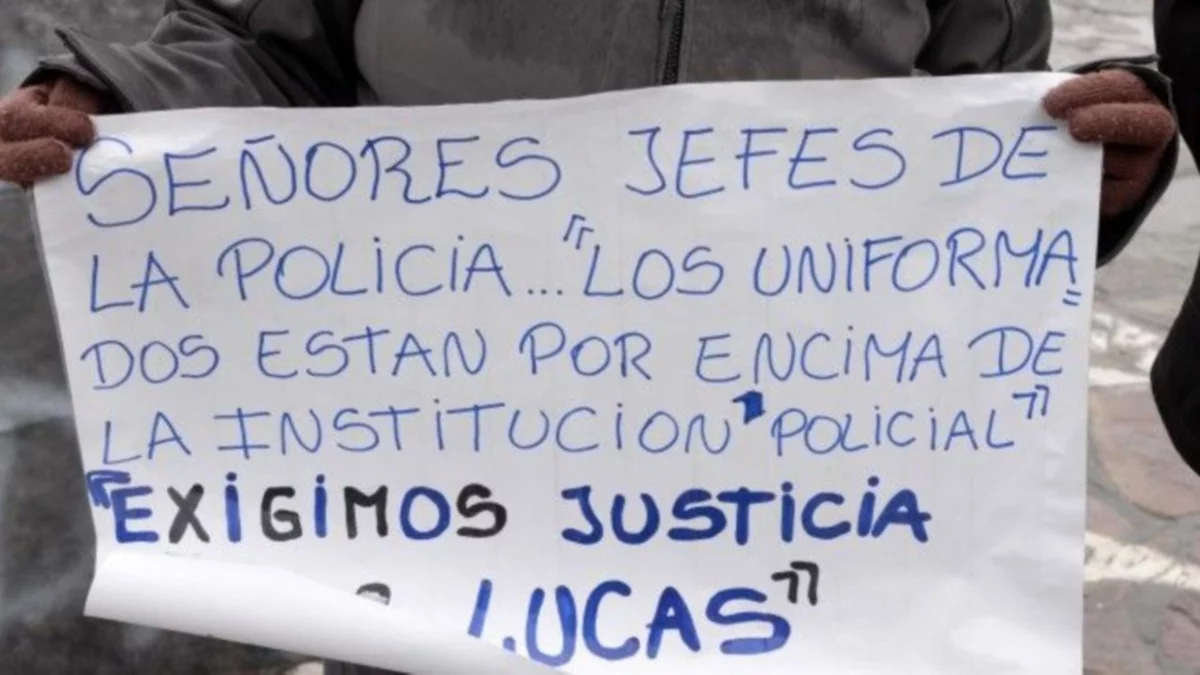 SEÑORES JEFES DE
LA POLICIA... "LOS UNIFORMA=
DOS ESTAN POR ENCIMA DE
LA INSTITUCION POLICIAL"
"EXIGIMOS JUSTICIA
LUCAS"